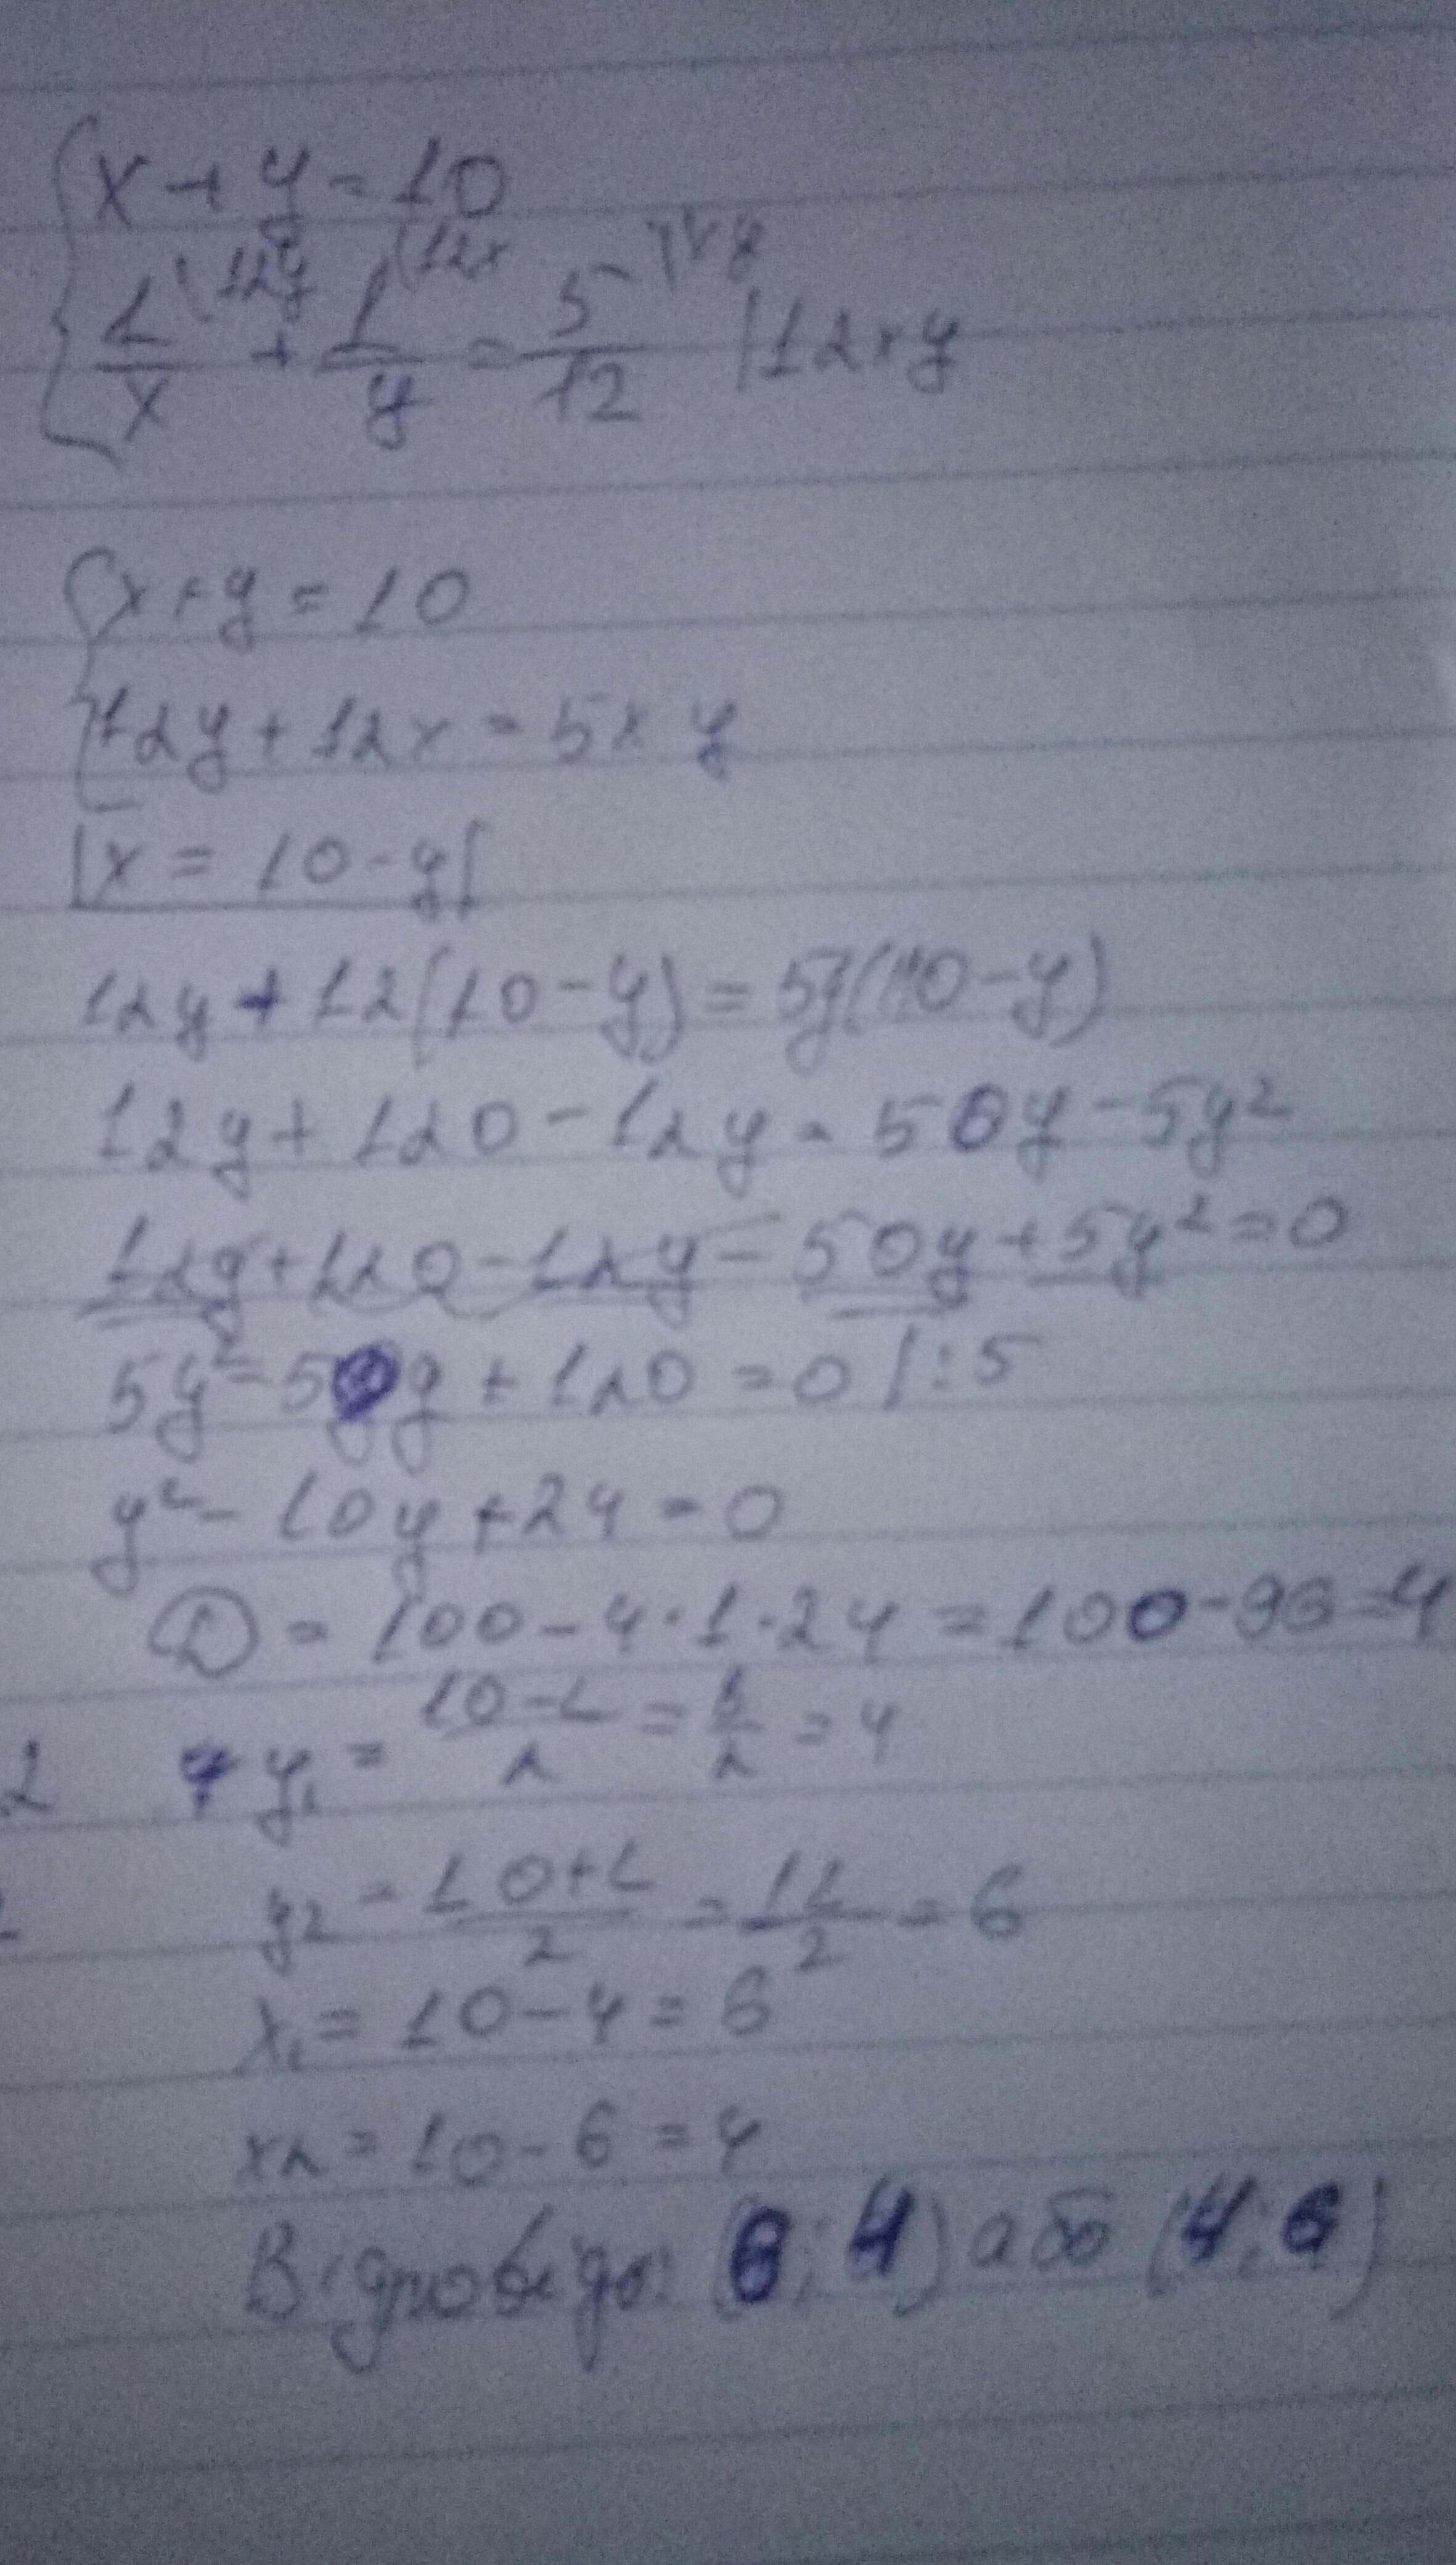 x + y = 10
1/x (12y + 1/y (12x = 5/12 (xy |12xy
x + y = 10
12y + 12x = 5xy
|x = 10 - y|
12y + 12(10 - y) = 5y(10 - y)
12y + 120 - 12y = 50y - 5y²
12y + 120 - 12y - 50y + 5y² = 0
5y² - 50y + 120 = 0 | : 5
y² - 10y + 24 = 0
D = 100 - 4 · 1 · 24 = 100 - 96 = 4
2 y₁ = (10 - 2)/2 = 8/2 = 4
y₂ = (10 + 2)/2 = 12/2 = 6
x₁ = 10 - 4 = 6
x₂ = 10 - 6 = 4
Відповідь: (6; 4) або (4; 6)